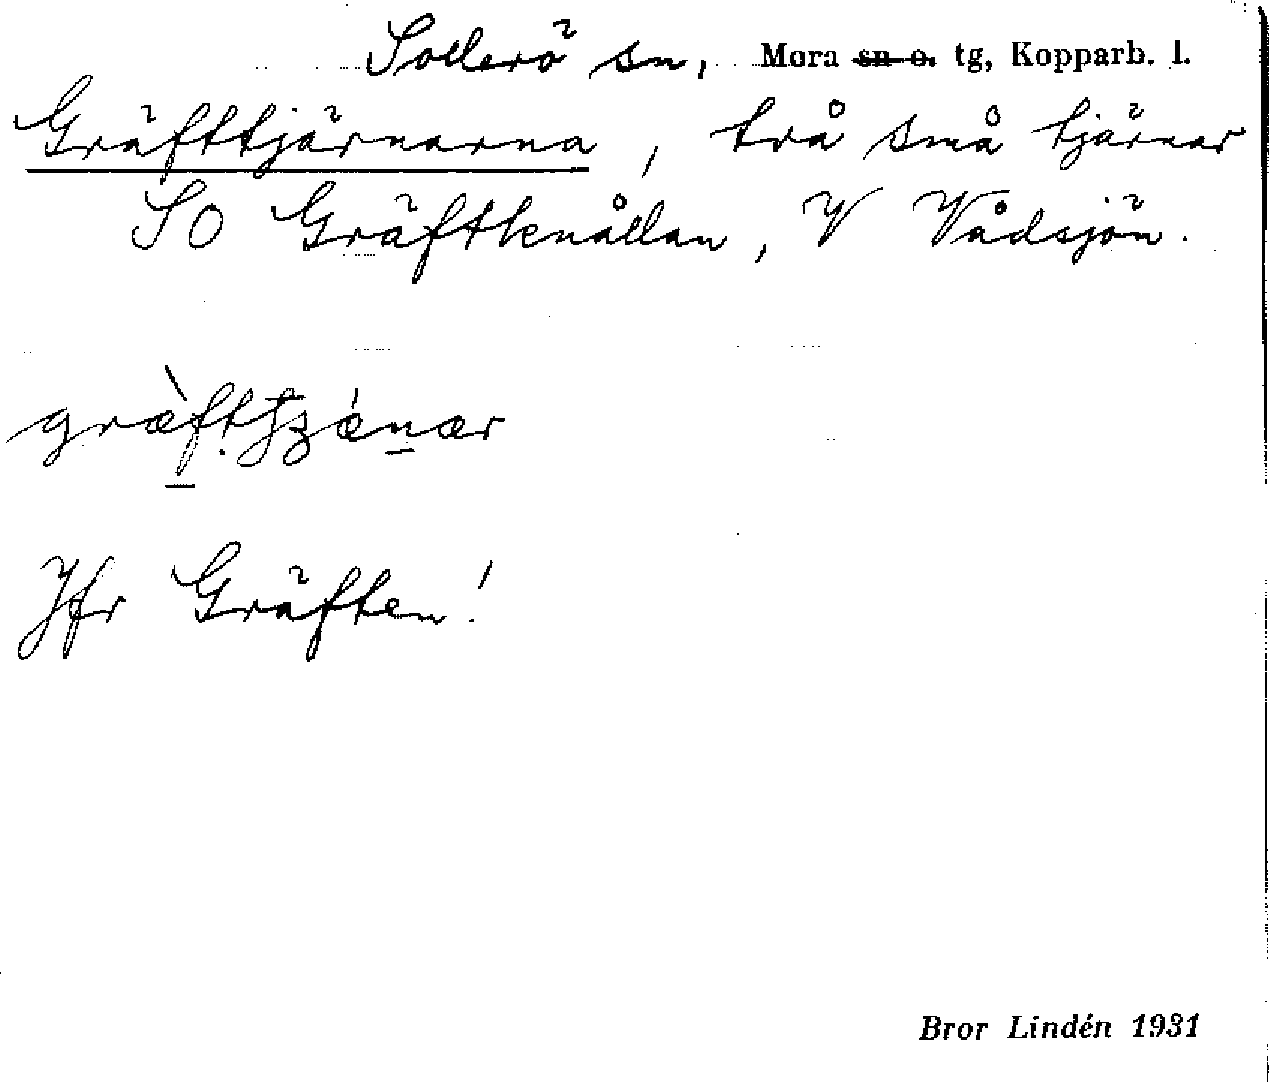 Sollerö sn, Mora sn o. tg, Kopparb. l.
Gräfttjärnarna, två små tjärnar
SO Gräftknållan, V Vådsjön.
Jfr Gräften!
Bror Lindén 1931